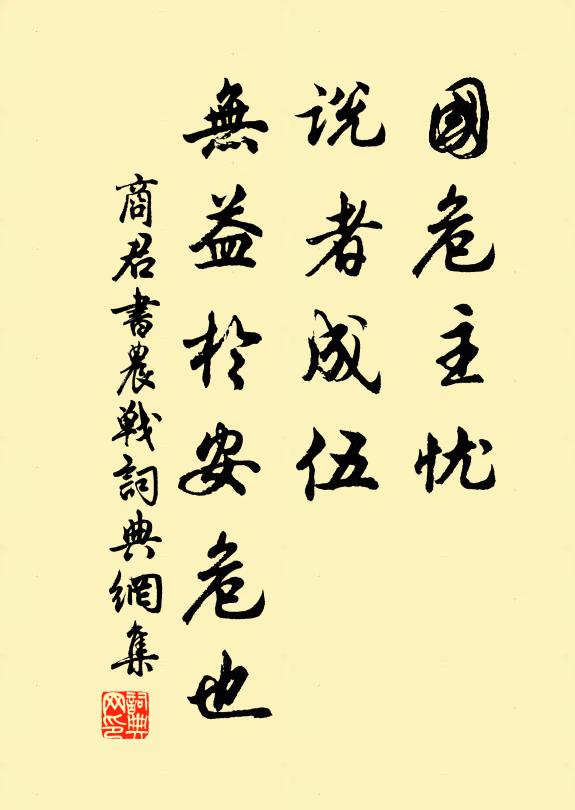 國危主忧
说者成伍
無益於安危也
商君書農戦詞典網集
詞典网印